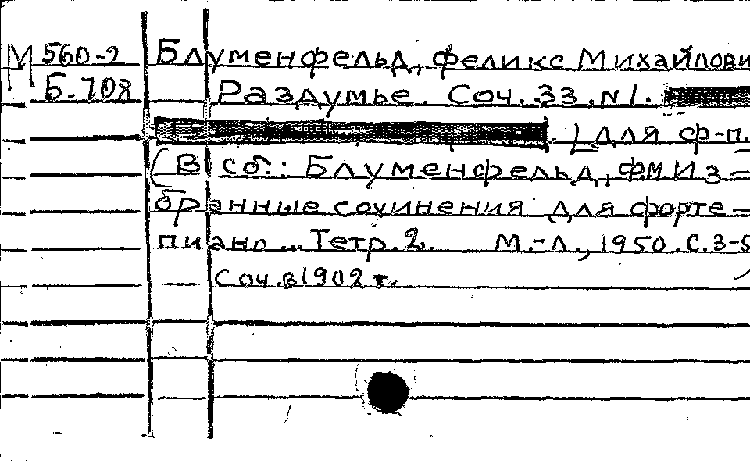 М 560-2 Блуменфельд, Феликс Михайлови
Б-708 Раздумье. Соч. 33. N1.
] для ф-п.
(В сб.: Блуменфельд, ФМ Из=
бранные сочинения для форте=
пиано... Тетр. 2. М.-Л., 1950. С. 3-5
Соч. в 1902 г.